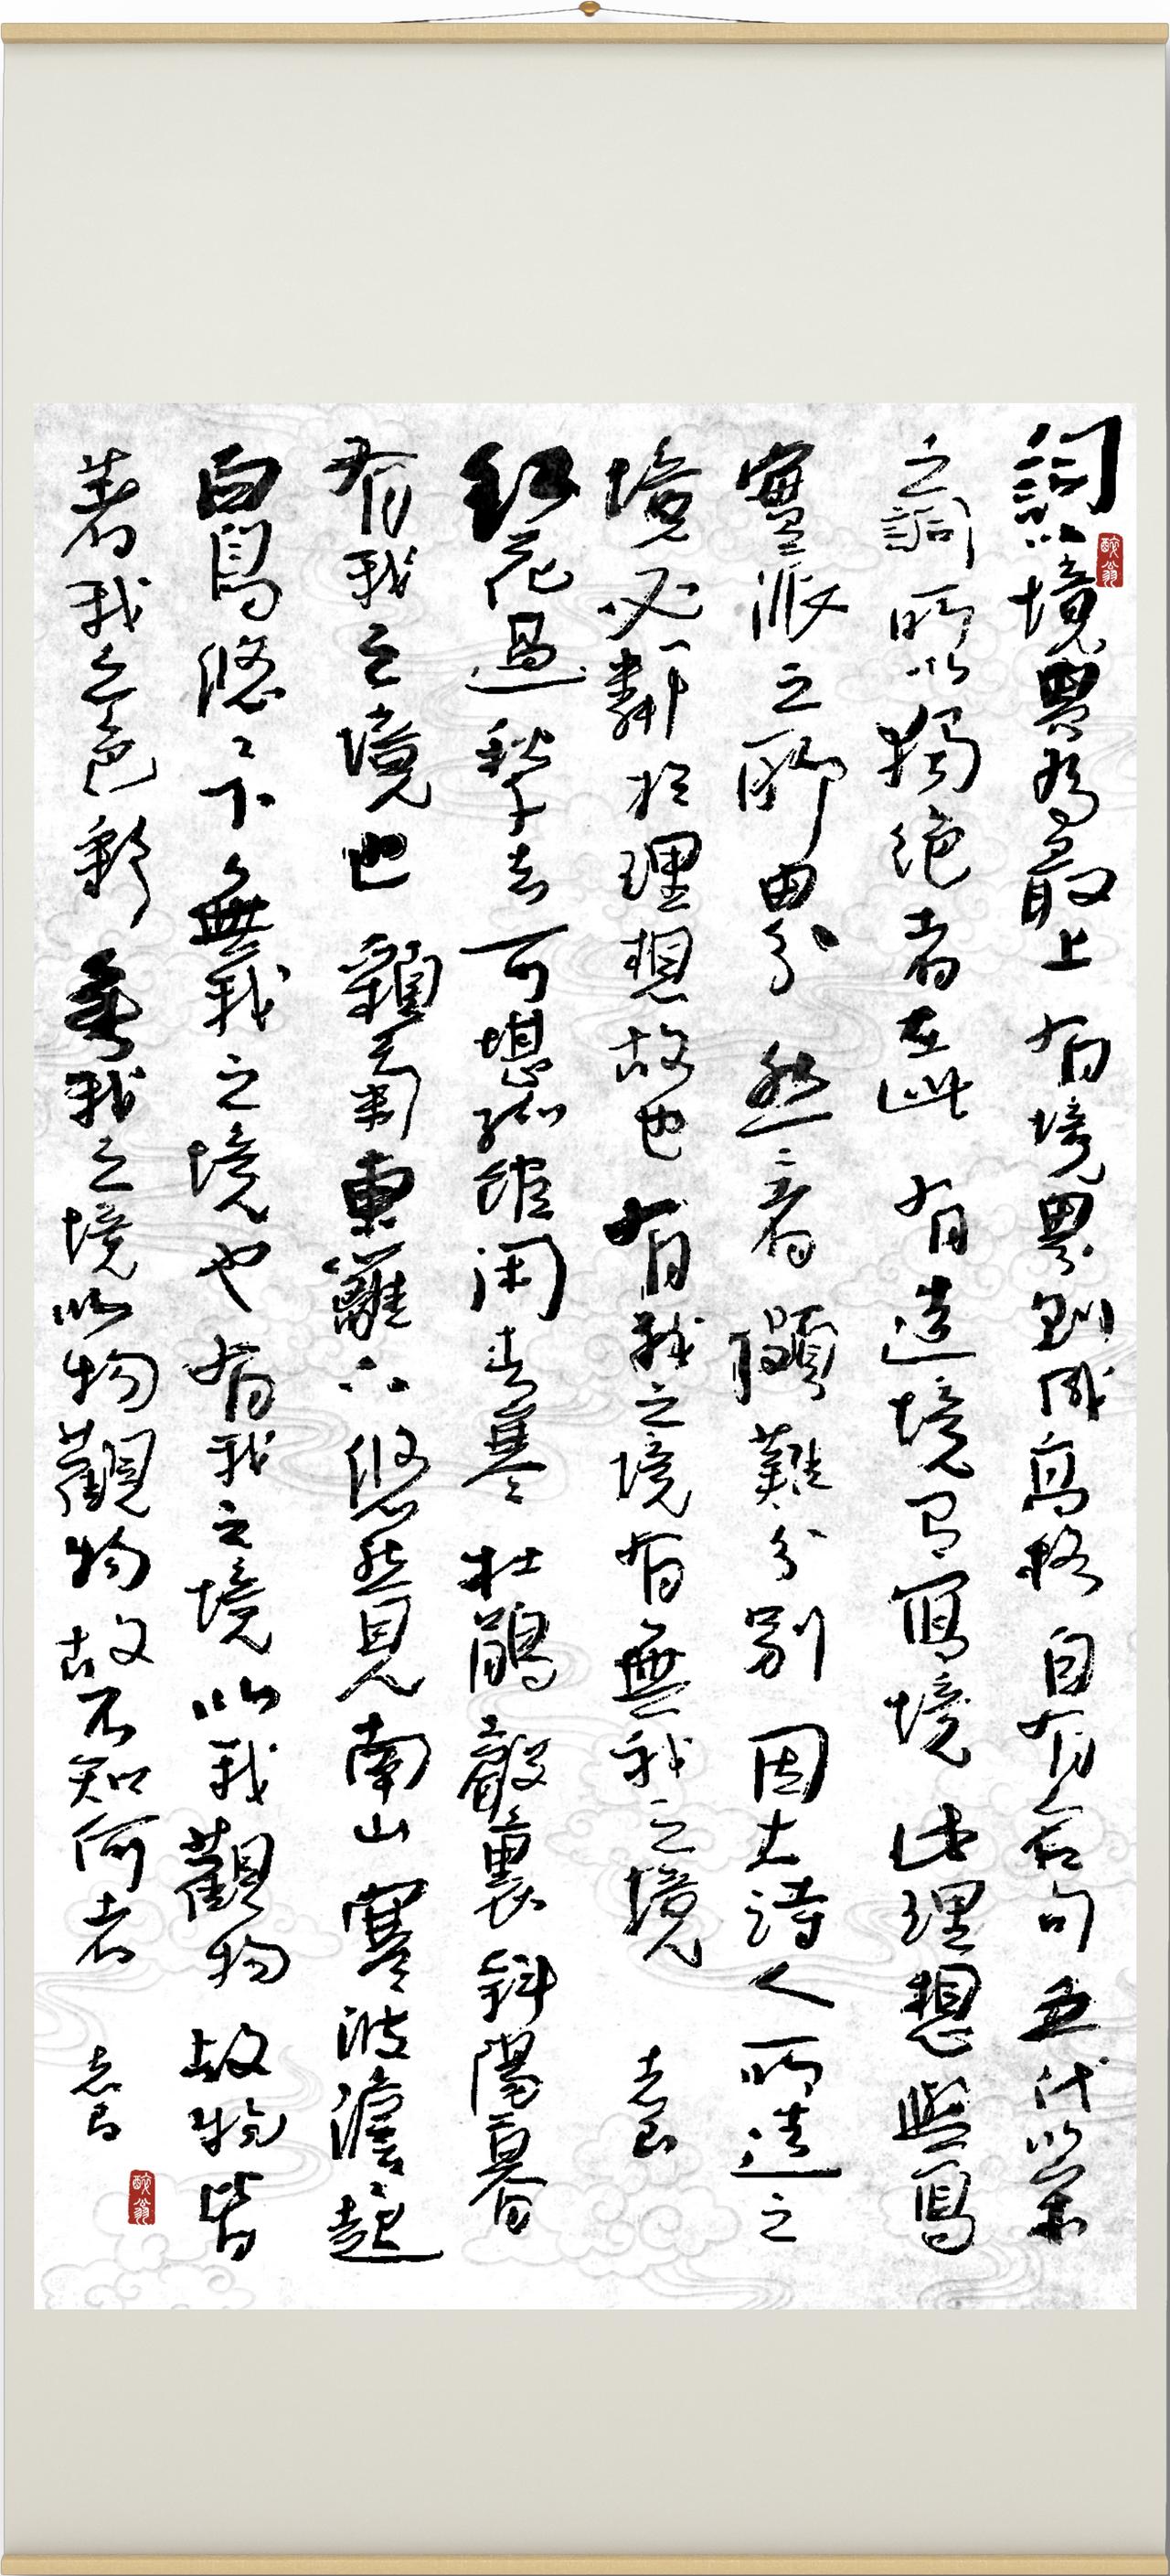 詞以境界為最上有境界則成高格自有名句五代北宋
之詞所以獨絕者在此有造境有寫境此理想與寫
實派之所由分然二者頗難分別因大詩人所造之
境必鄰於理想故也有我之境有無我之境
紅花過鞦千去可堪孤館閉春寒杜鵑聲裏斜陽暮
有我之境也採菊東籬下悠然見南山寒波澹澹起
白鳥悠悠下無我之境也有我之境以我觀物故物皆
著我之色彩無我之境以物觀物故不知何者
醉翁
醉翁